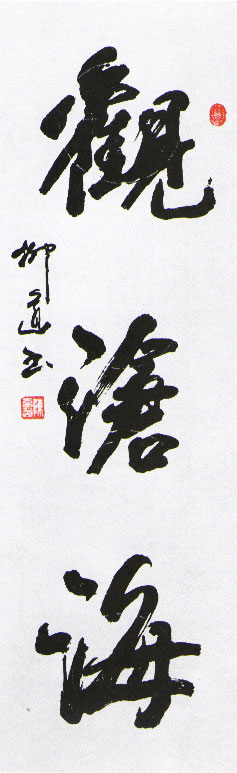 觀滄海
柳道